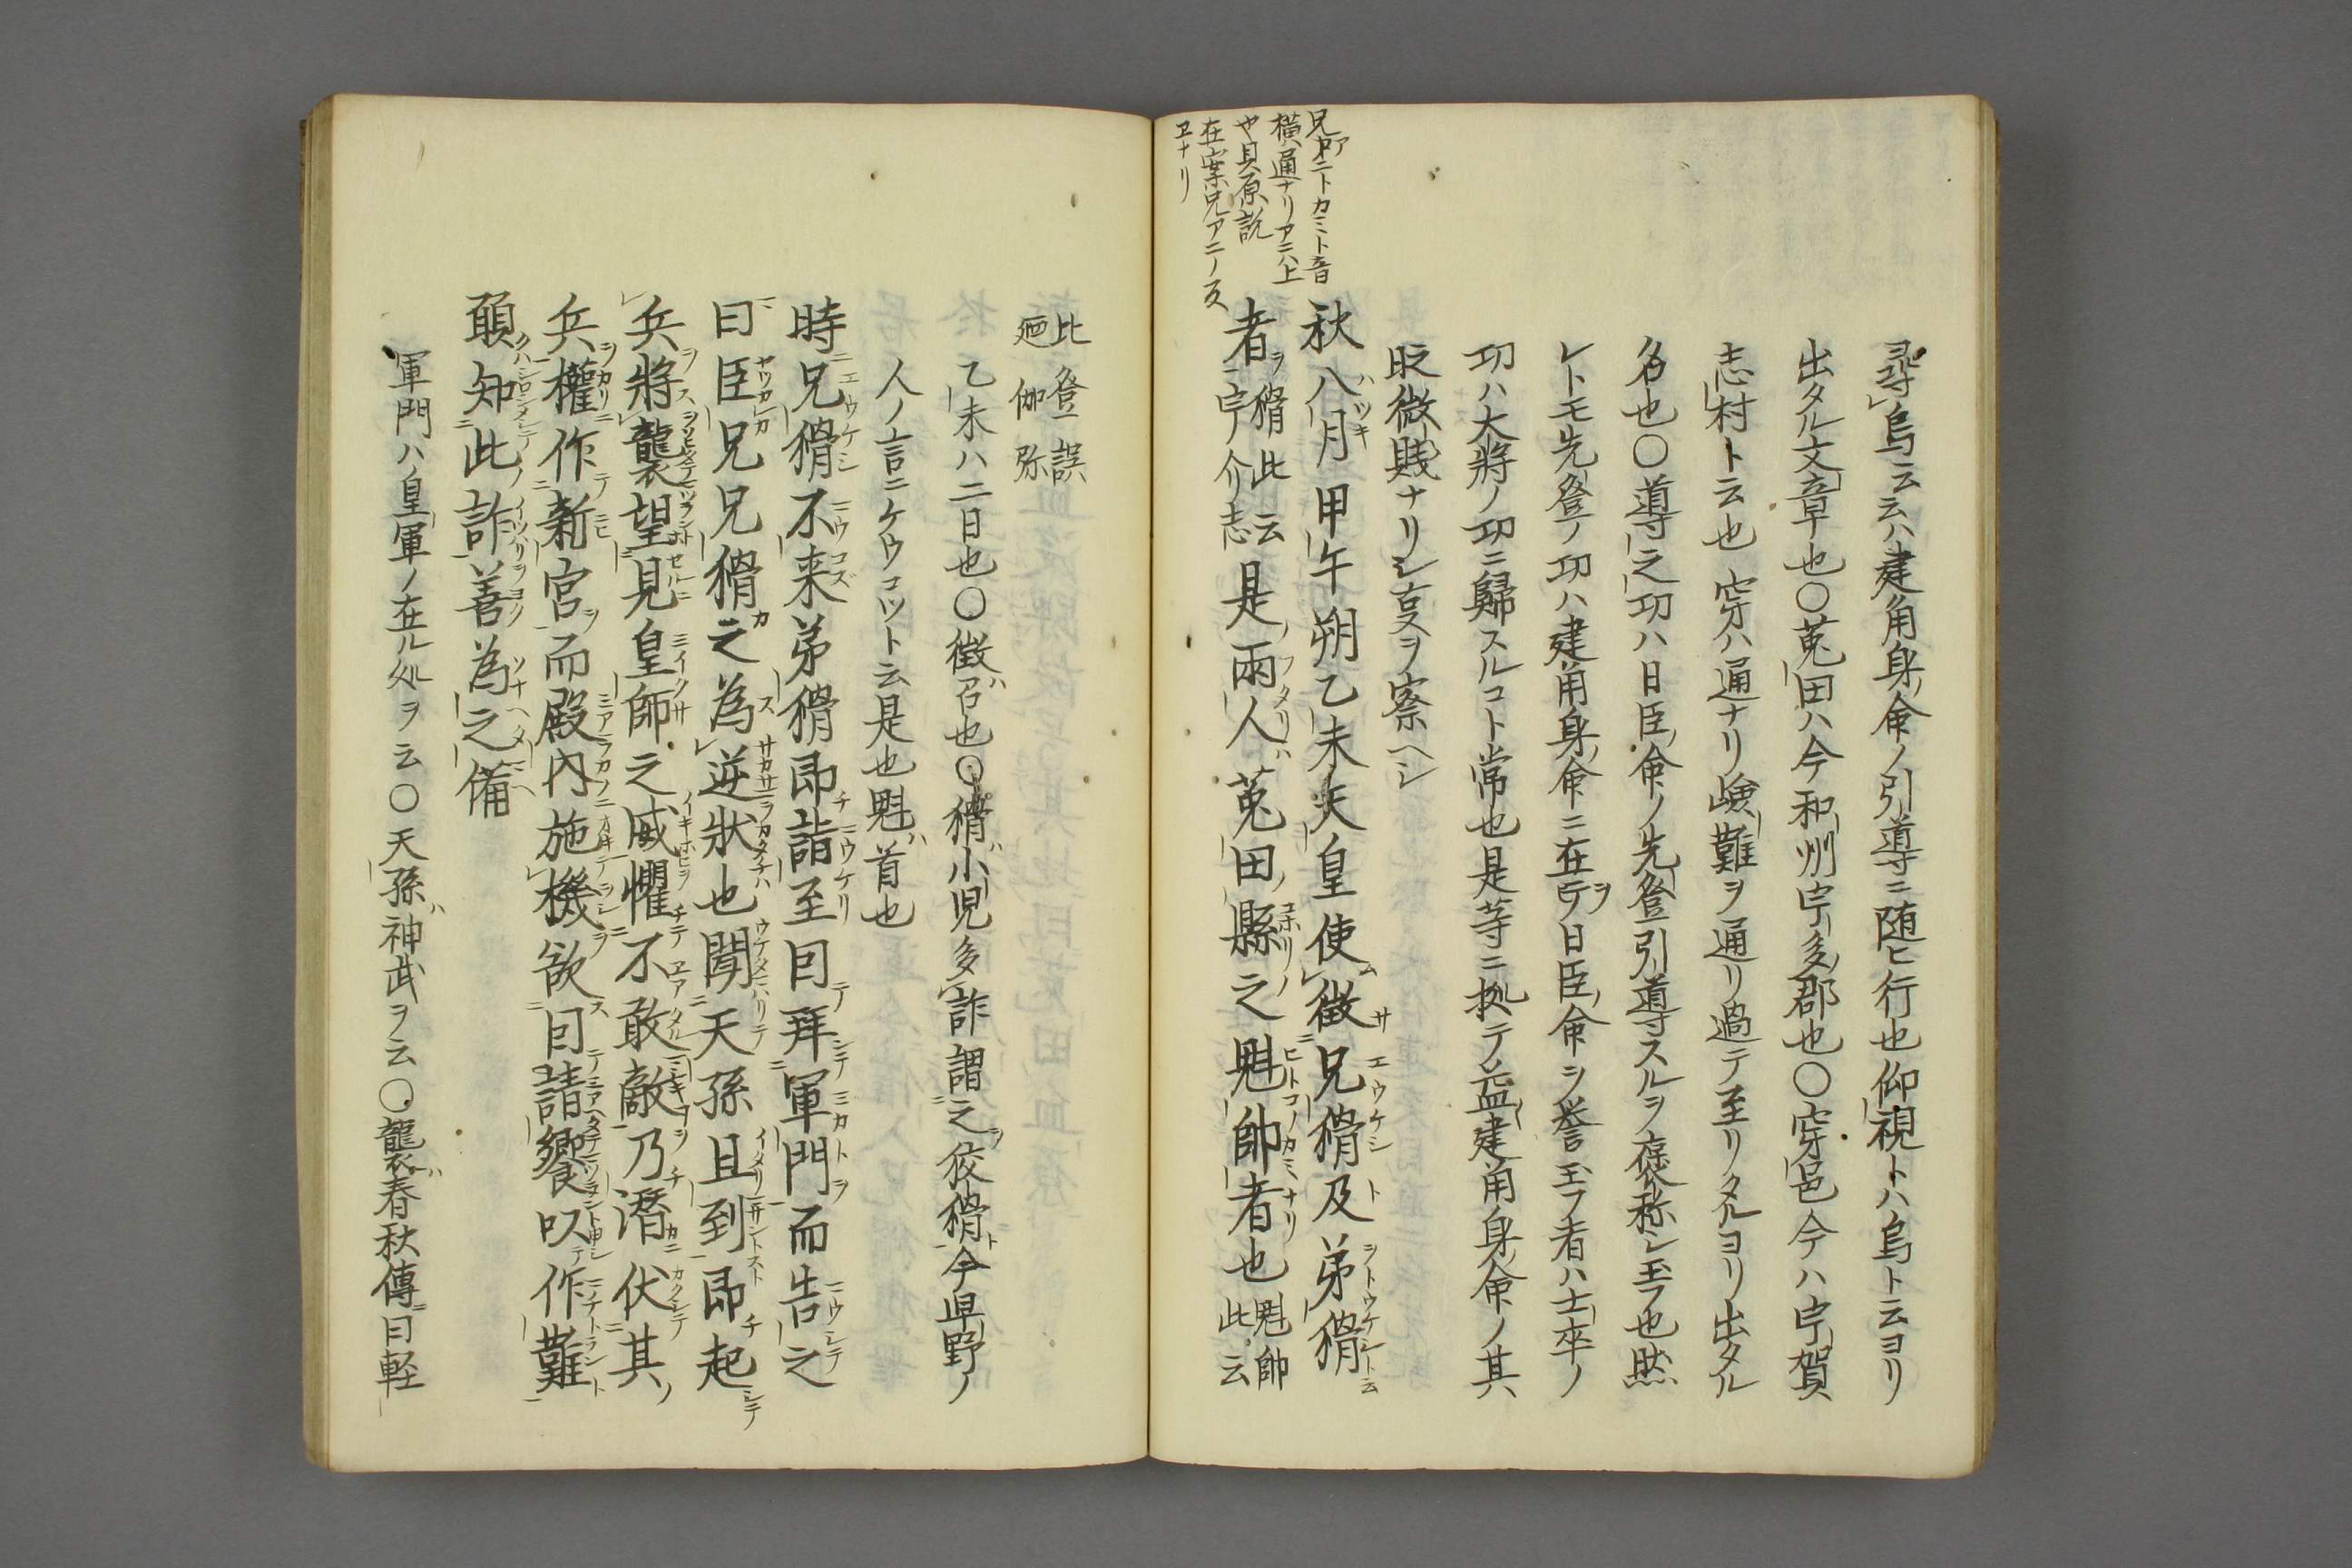 尋烏云云ハ建角身命ノ引導ニ随ヒ行也仰視トハ烏ト云ヨリ
出タル文章也〇菟田ハ今和州宇多郡也〇穿邑今ハ宇賀
志村ト云也穿ハ通ナリ嶮難ヲ通リ過テ至リタルヨリ出タル
名也〇導之功ハ日臣命ノ先登引導スルヲ褒称シ玉フ也然
レトモ先登ノ功ハ建角身命ニ在テ日臣命ヲ誉玉フ者ハ士卒ノ
功ハ大将ノ功ニ歸スルコト常也是等ニ拠テ益建角身命ノ其
時微賤ナリシ叓ヲ察ヘシ
秋八月甲午朔乙未天皇使徴兄猾及弟猾
者猾此云宇介志是兩人菟田縣之魁帥者也魁帥此云
横通ナリアニハ上
や貝原説
在案兄アニノ反
ヱナリ
比登誤
廼伽弥
乙未ハ二日也〇徴ハ召也〇猾ハ小児多詐謂之狡猾ト今卑野ノ
人ノ言ニケウコツト云是也魁ハ首也
時兄猾不来弟猾即詣至因拜軍門而告之
曰臣兄兄猾之為逆狀也聞天孫且到即起
兵將襲望見皇師之威懼不敢敵乃潛伏其
兵權作新宮而殿內施機欲因請饗以作難
願知此詐善為之備
軍門ハ皇軍ノ在ル処ヲ云〇天孫ハ神武ヲ云〇襲ハ春秋傳ニ曰軽